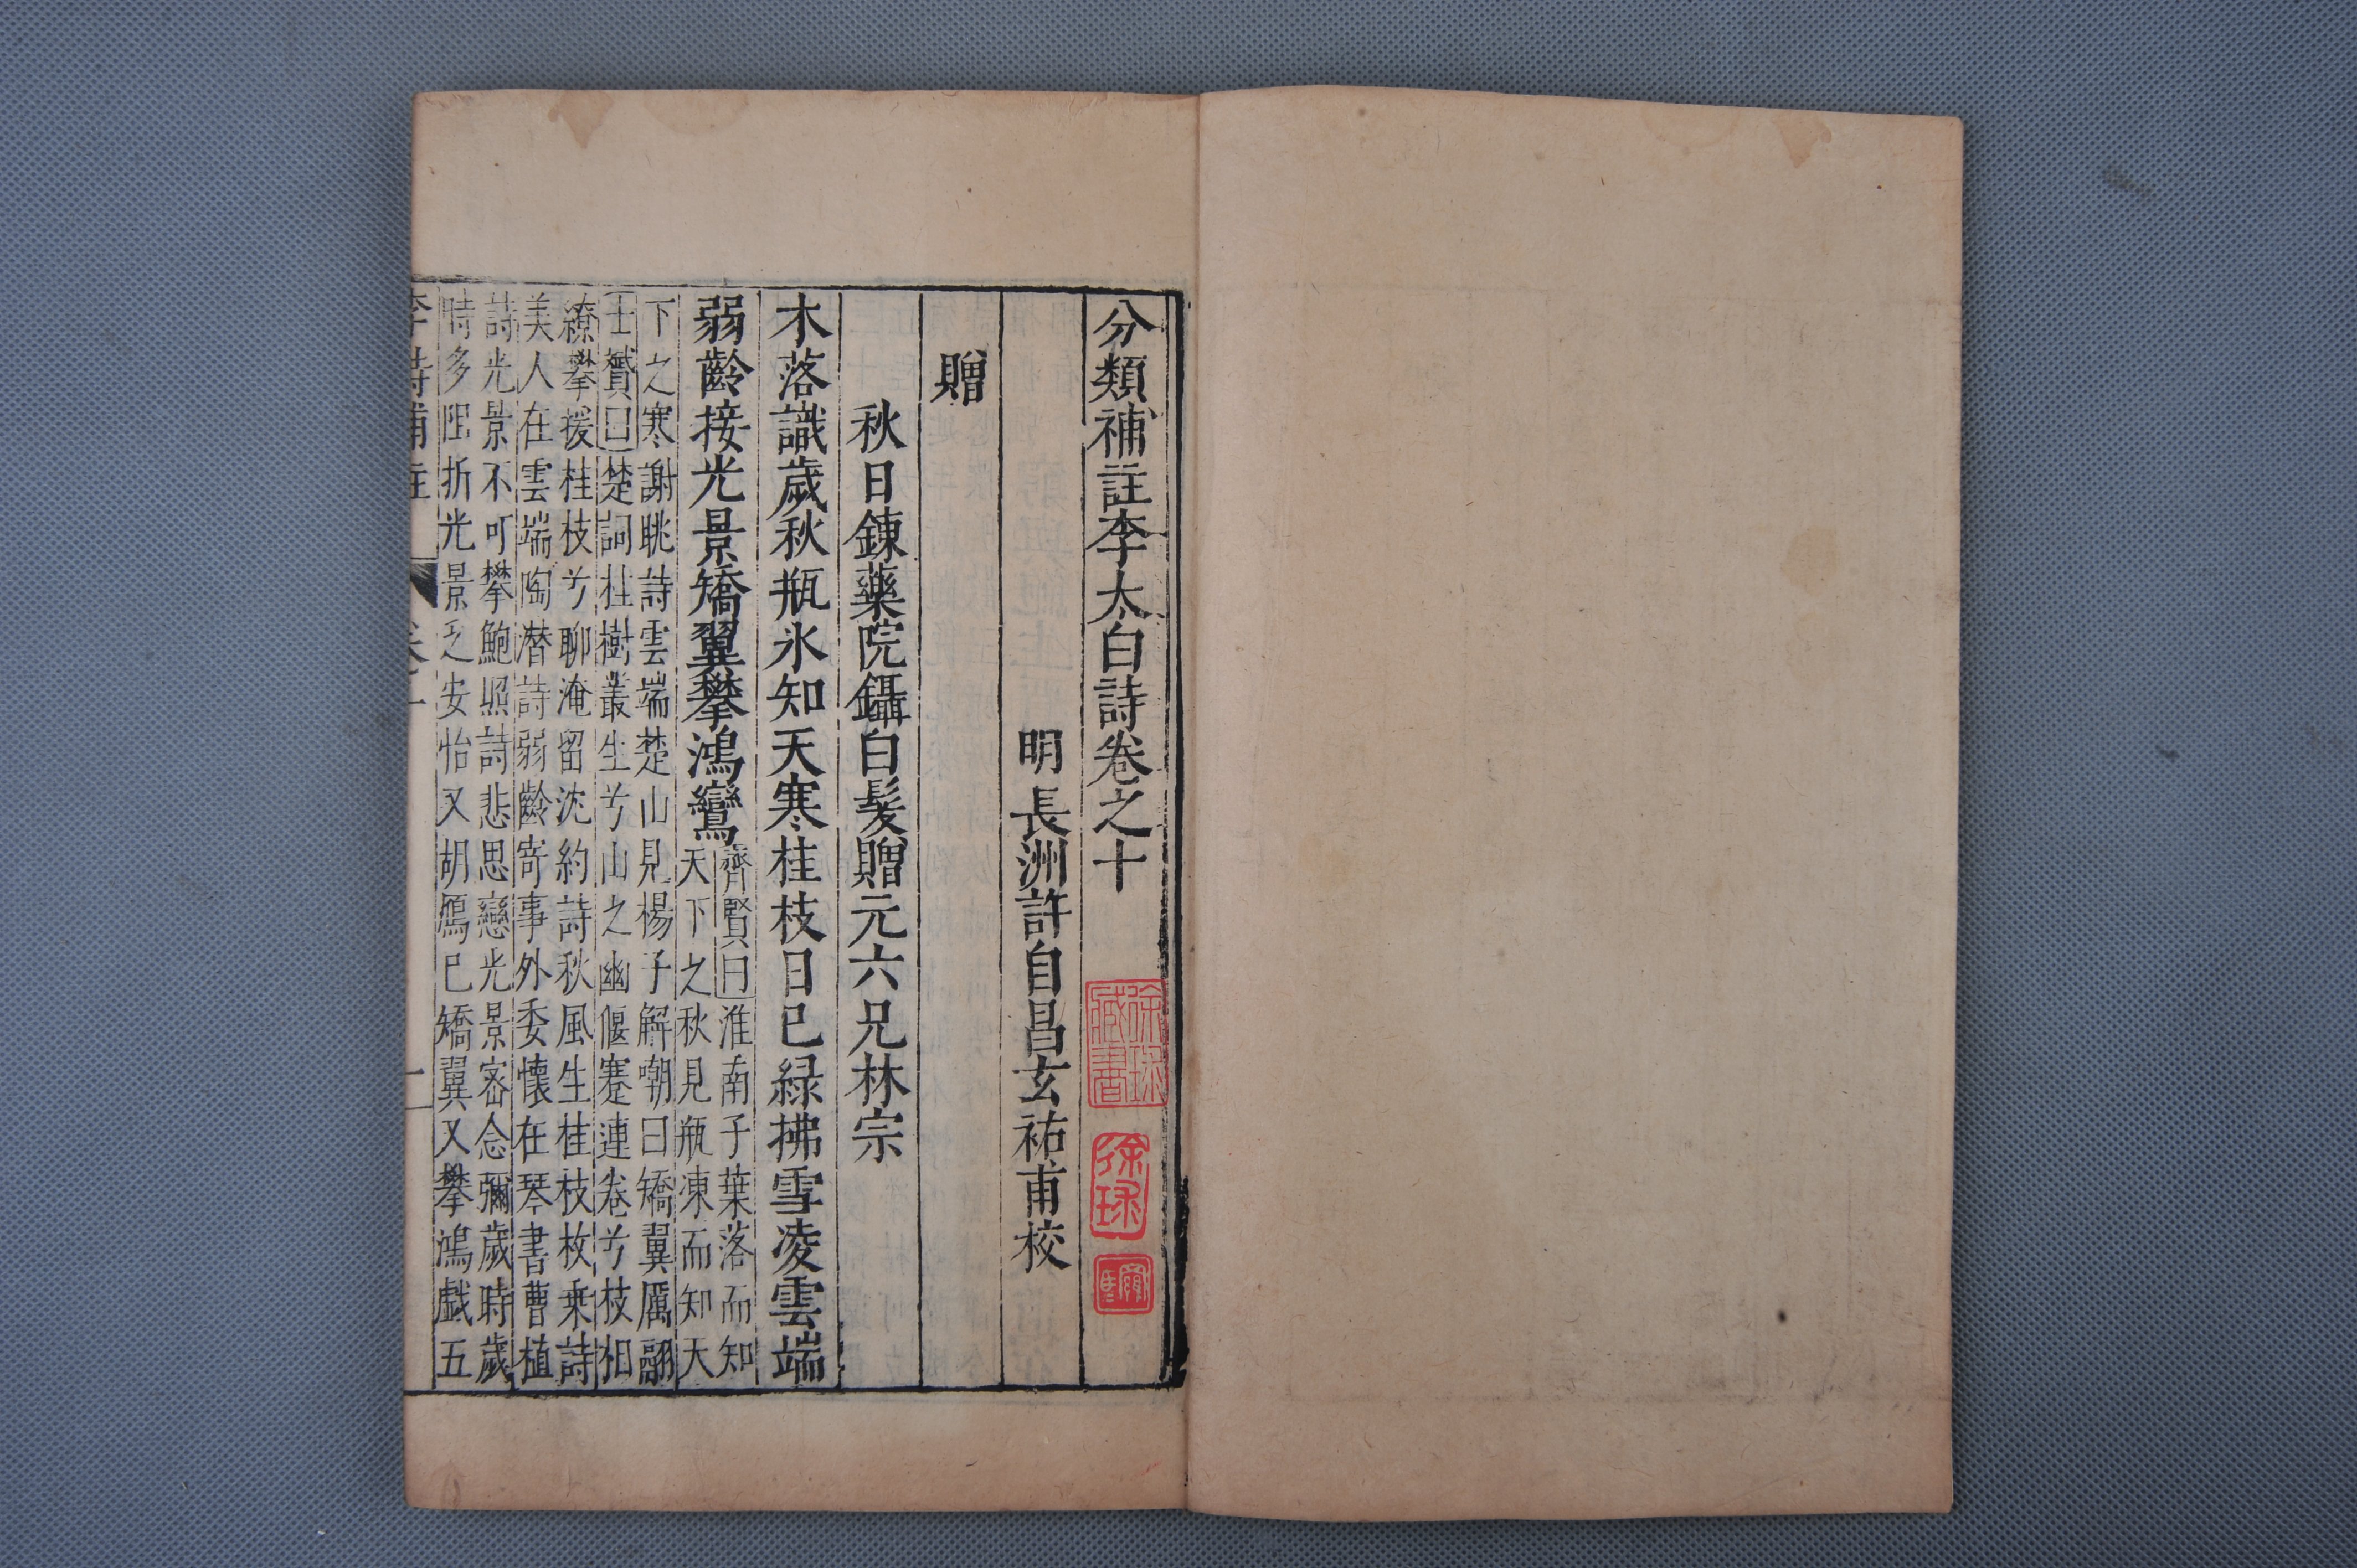 分類補註李太白詩卷之十
明長洲許自昌玄祐甫校
贈
秋日鍊藥院鑷白髮贈元六兄林宗
木落識歲秋瓶氷知天寒桂枝日已綠拂雪凌雲端
弱齡接光景矯翼攀鴻鸞
齊賢曰淮南子葉落而知
天下之秋見瓶凍而知天
下之寒謝眺詩雲端楚山見楊子解嘲曰矯翼厲翮
士贇曰楚詞桂樹叢生兮山之幽偃蹇連卷兮枝相
繚攀援桂枝兮聊淹留沈約詩秋風生桂枝枚乘詩
美人在雲端陶潛詩弱齡寄事外委懷在琴書曹植
詩光景不可攀鮑照詩悲思戀光景密念彌歲時歲
時多阻折光景乏安怡又胡鴈已矯翼又攀鴻戲五
李詩補註
卷十
一
徐球藏書
徐球